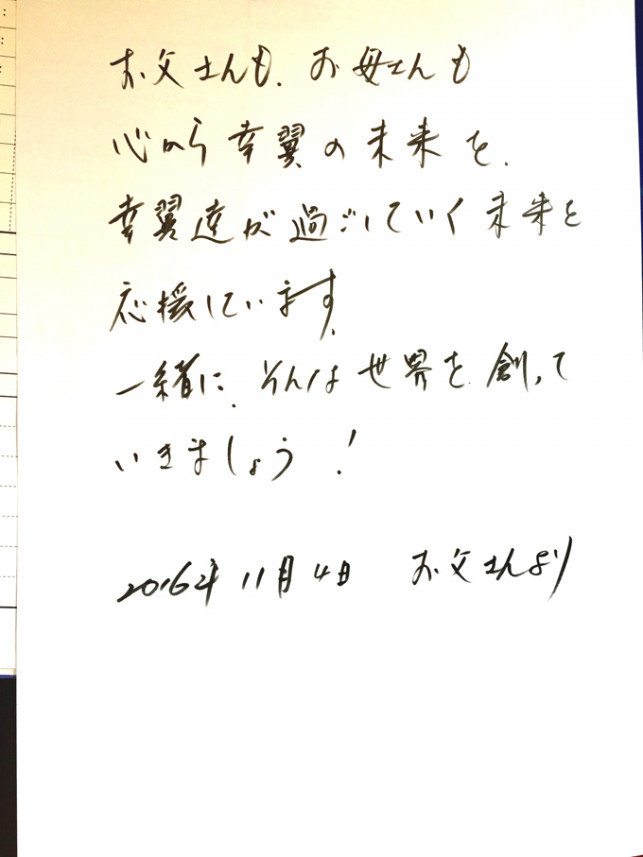 お父さんも、お母さんも
心から幸翼の未来を、
幸翼達が過ごしていく未来を
応援しています。
一緒に、そんな世界を創って
いきましょう！
2016年11月4日 お父さんより